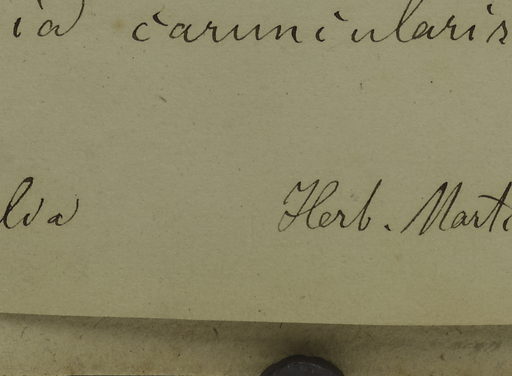 ia caruncularis
lia Herb. Marti